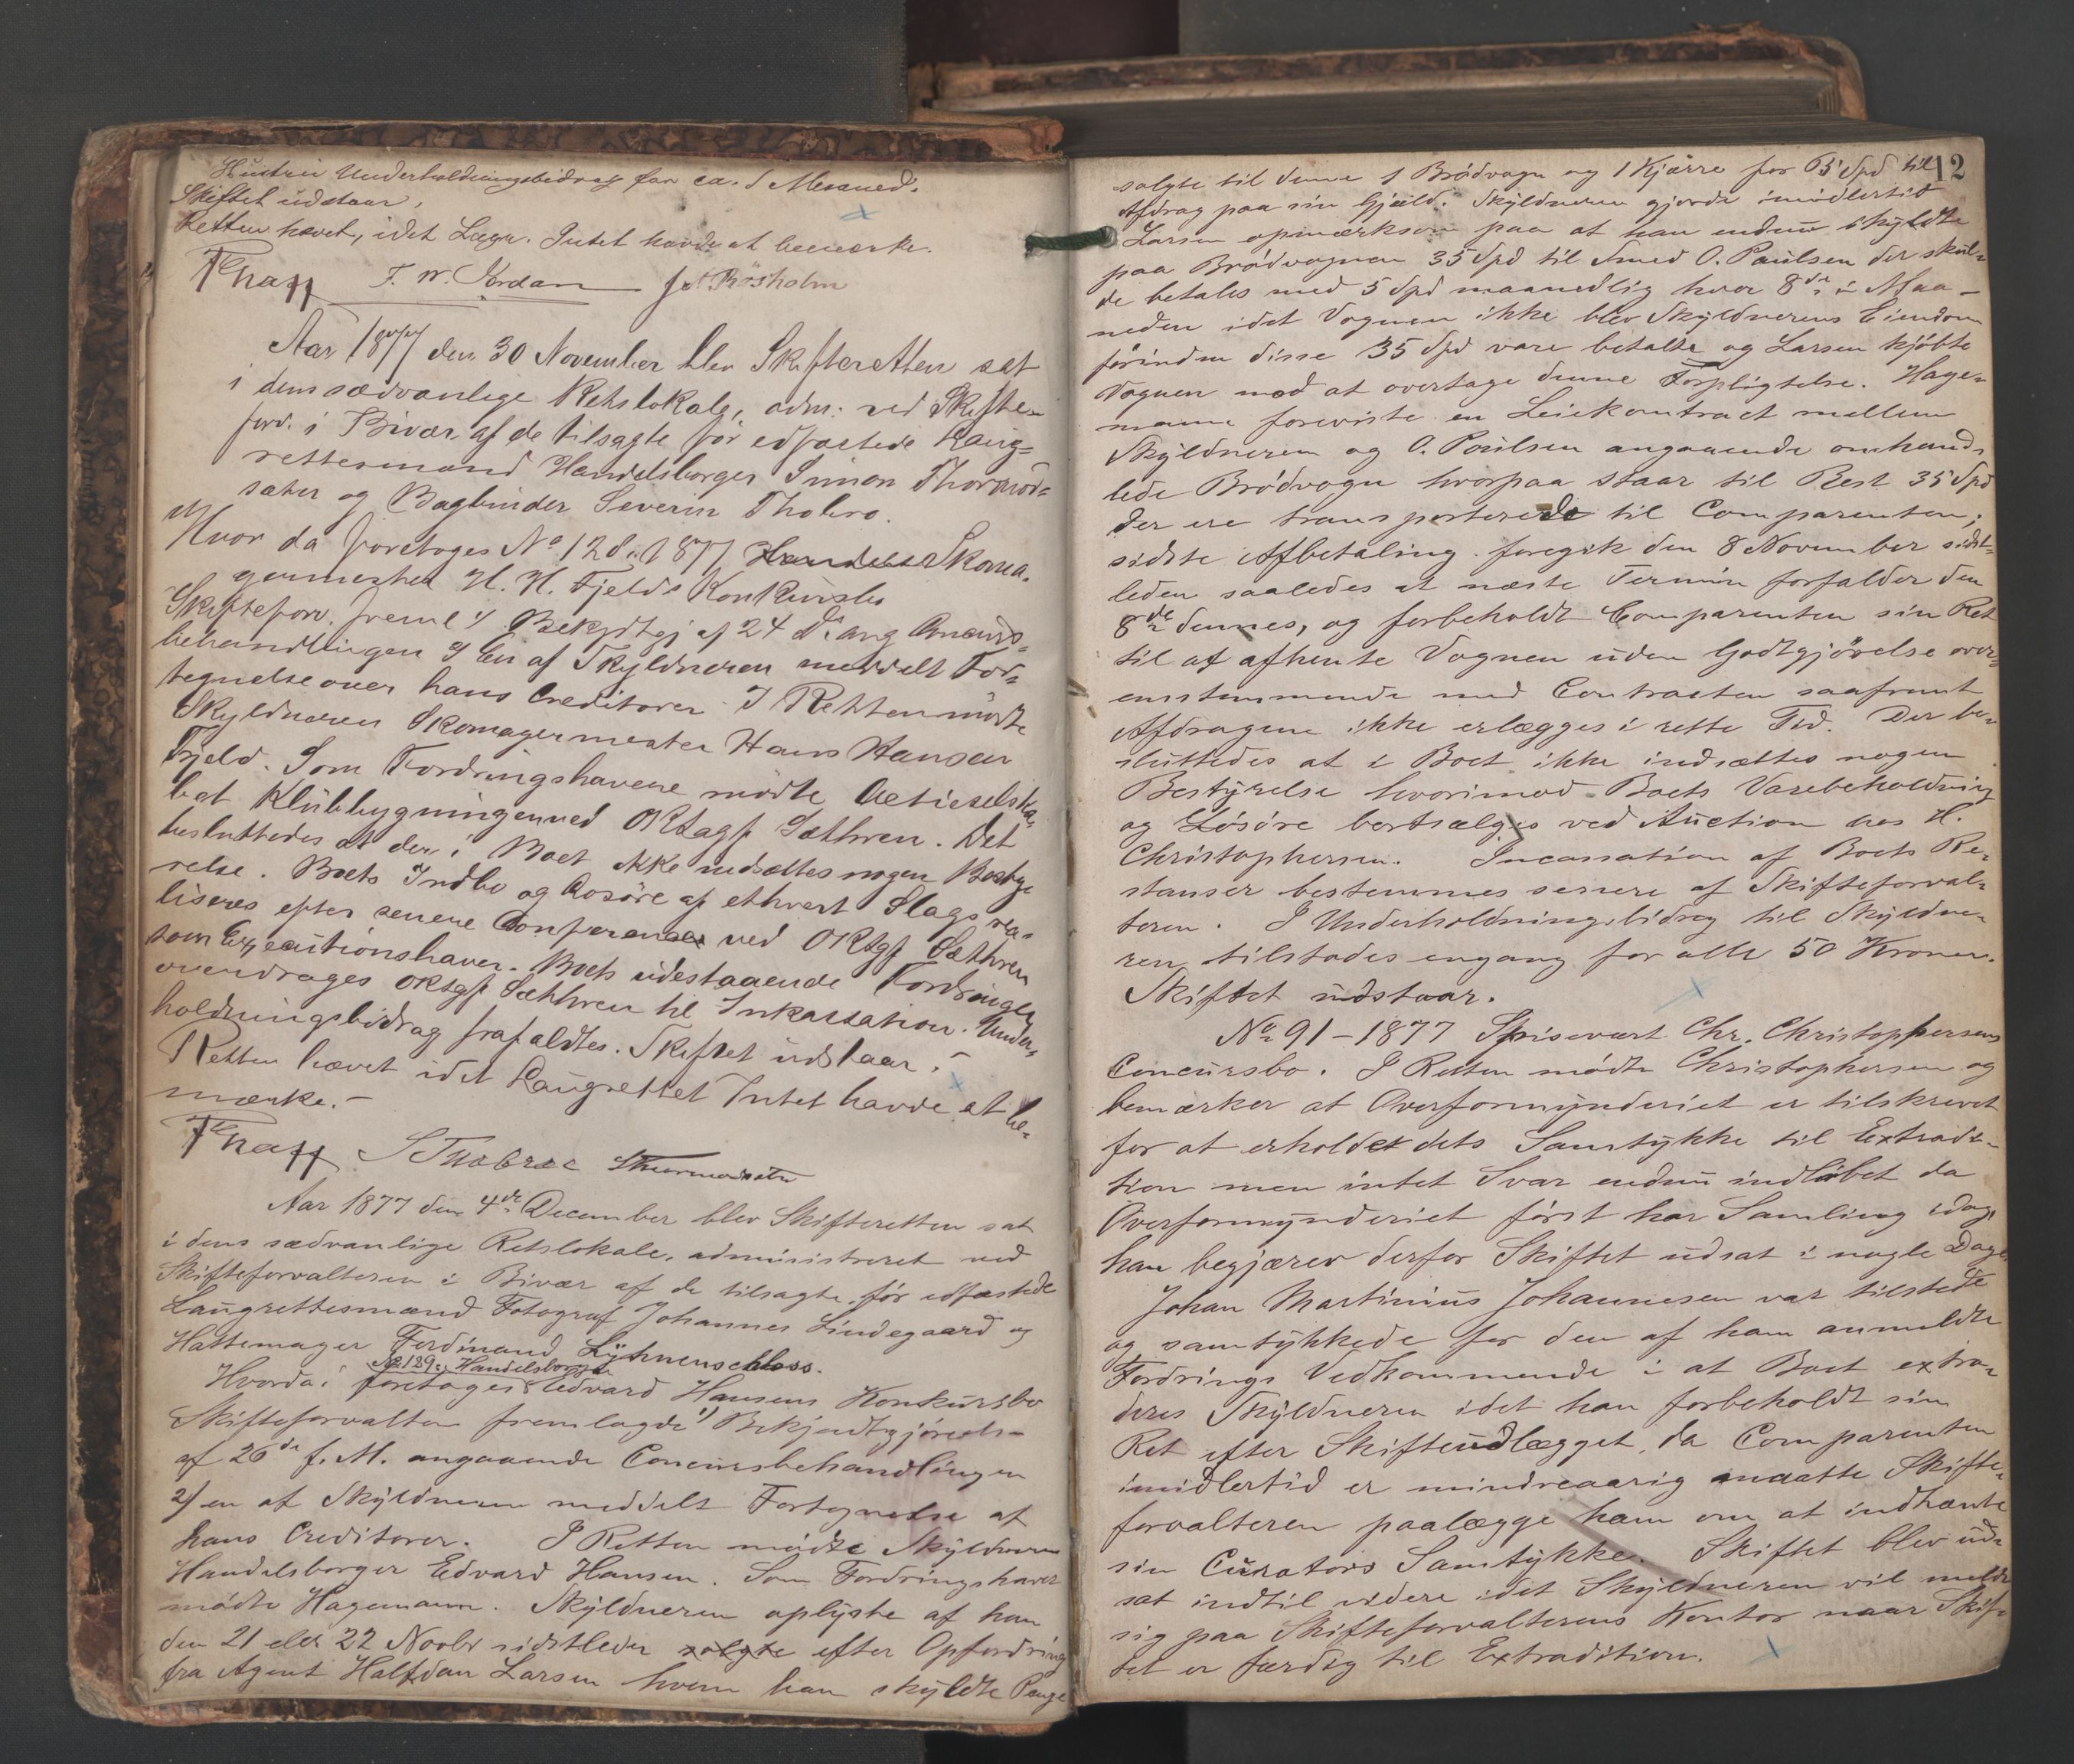 Hustru Underholdningsbidrag for ca. 1 Maaned.
Skiftet udstaar.
Retten hævet, idet Lagr. Intet havde at bemærke.
F. W. Jordan
Aar 1877 den 30 November blev Skifteretten sat
i dens sædvanlige Retslokale, adm. ved Skifte-
forv. i Bivær af de tilsagte før edfæstede Laug-
rettesmænd Handelsborger Simon Thormod-
sæter og Bogbinder Severin Thobro.
Hvor da foretoges No 128 1877 Skoma-
germester H. H. Fjelds Konkursbo
Skifteforv. freml 1/ Bekjdtgj af 24 ds ang Concurs-
behandlingen 2/ En af Skyldneren meddelt For-
tegnelse over hans Creditorer. I Retten mødte
Skyldneren Skomagermester Hans Hansen
Fjeld. Som Fordringshavere mødte Actieselska-
bet Klubbygningen ved ORsagf Sæthren. Det
besluttedes at der i Boet ikke indsættes nogen Besty-
relse. Boets Indbo og Løsøre af ethvert Slags rea-
liseres efter senere Conference ved ORsgf Sæthren
som Executionshaver. Boets udestaaende Fordringer
overdrages ORsgf Sæthren til Inkassation. Under-
holdningsbidrag frafaldtes. Skiftet udstaar.
Retten hævet idet Laugrettet Intet havde at be-
mærke.-
Aar 1877 den 4de December blev Skifteretten sat
i dens sædvanlige Retslokale, administreret ved
Skifteforvalteren i Bivær af de tilsagte, før edfæstede
Laugrettesmænd Fotograf Johannes Lindegaard og
Hattemager Ferdinand Lyhnenschloss.
No 129: Handelsborger
Hvorda: foretoges Edvard Hansens Konkursbo
Skifteforvalten fremlagde 1) Bekjendtgjørelse
af 26de f. M. angaaende Concursbehandlingen
2/ en af Skyldneren meddelt Fortegnelse af
hans Creditorer. I Retten mødte Skyldneren
Handelsborger Edvard Hansen. Som Fordringshaver
mødte Hagemann. Skyldneren oplyste af han
den 21 eller 22 Novbr sidstleden solgte efter Opfordring
fra Agent Halfdan Larsen hvem han skyldte Penge
12
solgte til denne 1 Brødvogn og 1 Kjærre for 65 Spd til
Afdrag paa sin Gjæld. Skyldneren gjorde imidlertid
Larsen opmærksom paa at han endnu skyldte
paa Brødvognen 35 Spd til Smed O. Paulsen der skul-
de betales med 5 Spd maanedlig hver 8de i Maa-
neden idet Vognen ikke blev Skyldnerens Eiendom
førinden disse 35 Spd vare betalte og Larsen kjøbte
Vognen mod at overtage denne Forpligtelse. Hage-
mann foreviste en Leiekontract mellem
Skyldneren og O. Poulsen angaaende omhand-
lede Brødvogn hvorpaa staar til Rest 35 Spd
der ere transporterede til Comparenten,
sidste Afbetaling foregik den 8 November sidst-
leden saaledes at næste Termin forfalder den
8de dennes, og forbeholdt Comparenten sin Ret
til at afhente Vognen uden Godtgjørelse over-
ensstemmende med Contracten saafremt
Afdragene ikke erlægges i rette Tid. Der be-
sluttedes at i Boet ikke indsættes nogen
Bestyrelse hvorimod Boets Varebeholdning
og Løsøre bortsælges ved Auction hos H.
Christophersen. Incassation af Boets Re-
stanser bestemmes senere af Skifteforval-
teren. I Underholdningsbidrag til Skyldne-
ren tilstodes engang for alle 50 Kroner.
Skiftet udstaar.
No 91 - 1877 Spisevært Chr. Christophersens
Concursbo. I Retten mødte Christophersen og
bemærker at Overformynderiet er tilskrevet
for at erholdet dets Samtykke til Extradi-
tion men intet Svar endnu indløbet da
Overformynderiet først har Samling idag,
han begjærer derfor Skiftet udsat i nogle Dage
Johan Martinius Johannesen var tilstede
og samtykkede for den af ham anmeldte
Fordrings Vedkommende i at Boet extra-
deres Skyldneren idet han forbeholdt sin
Ret efter Skifteudlægget, da Comparenten
imidlertid er mindreaarig maatte Skifte-
forvalteren paalægge ham om at indhænte
sin Curators Samtykke. Skiftet blev ud-
sat indtil videre idet Skyldneren vil melde
sig paa Skifteforvalterens Kontor naar Skif-
tet er færdig til Extradition.